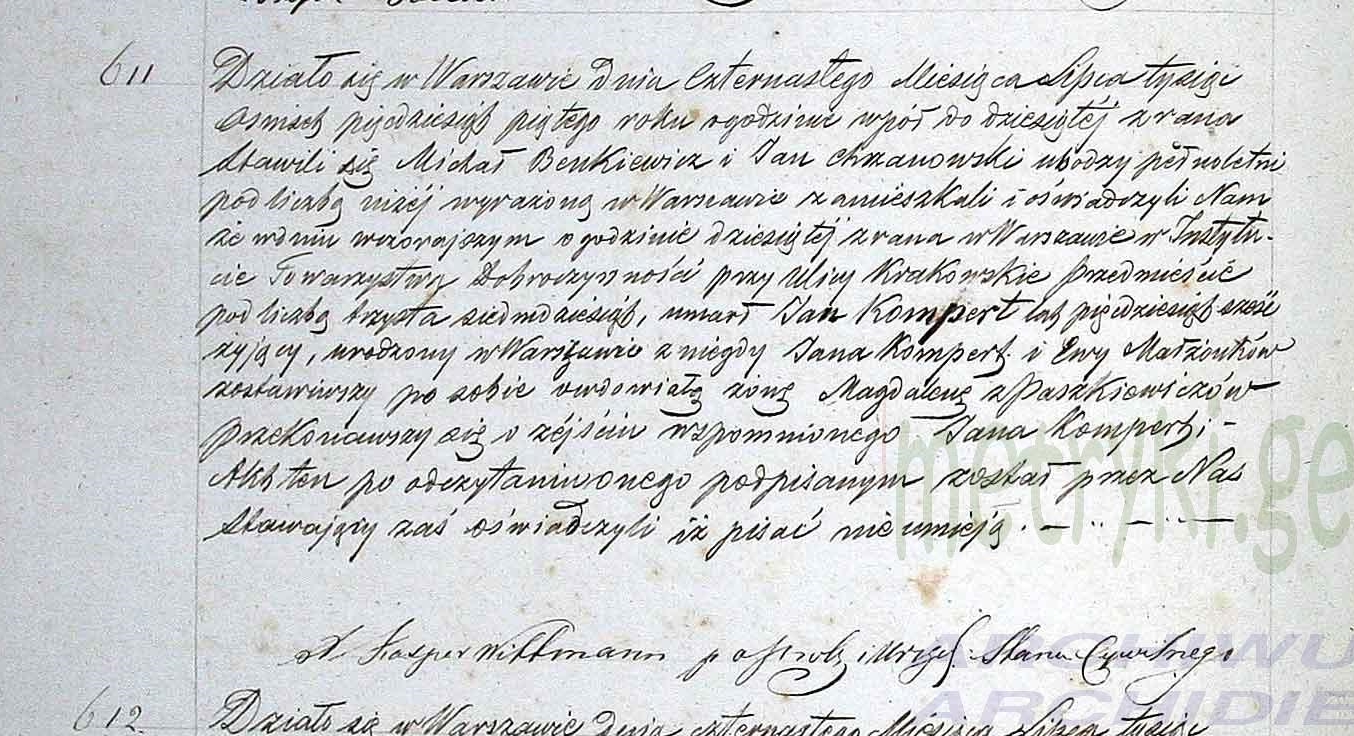 611
Działo się w Warszawie Dnia Czternastego Miesiąca Lipca tysiąc
Osmset pięćdziesiąt piątego roku o godzinie wpół do dziesiątéj z rana
Stawili się Michał Benkiewicz i Jan Chrzanowski ubodzy pełnoletni
pod liczbą niżéj wyrażoną w Warszawie zamieszkali i oświadczyli Nam
że w dniu wczorajszym o godzinie dziesiątéj z rana w Warszawie w Instytu-
cie Towarzystwa Dobroczynności przy Ulicy Krakowskie Przedmieście
pod liczbą trzysta siedmdziesiąt, umarł Jan Kompert lat pięćdziesiąt sześć
żyjący, urodzony w Warszawie z niegdy Jana Kompert i Ewy Małżonków
zostawiwszy po sobie owdowiałą żonę Magdalenę z Paszkiewiczów
przekonawszy się o zéjściu wspomnionego Jana Kompert, -
Akt ten po odczytaniu onego podpisanym został przez Nas
Stawający zaś oświadczyli iż pisać nie umieją. - .. - . -
metryki.ge
X Kasper Wittmann Stanu Cywilnego
ARCHIWU
ARCHIDIE
612. Działo się w Warszawie Dnia czternastego Miesiąca Lipca tysiąc